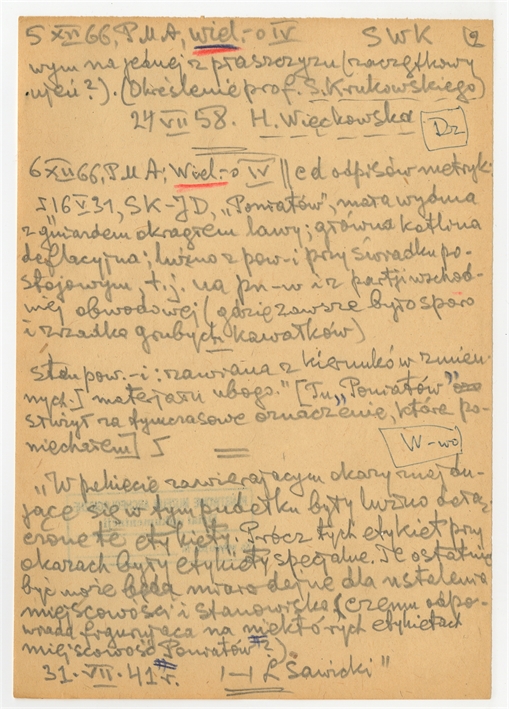 5 XII 66, P M A, Wiel.-o IV SWK 2
wym na jednej z płaszczyzn (zaczątkowy
.ujeń?). (Określenie prof. S. Krukowskiego)
24 VII 58. H. Więckowska Dz
6 XII 66, P M A; Wiel.-o IV || c d odpisów metryk:
16 V 31, SK-JD, „Poniatów”, mała wydma
z gniazdem okrągłem lawy; główna kotlina
deflacyjna; luźno z pow-i przy świadku po-
stojowym, t.j. na pn-w i z partji wschod-
niej obwodowej (gdzie zawsze było sporo
i zrzadka grubych kawałków)
stan pow.-i: zawiana z kierunków zmien-
nych.] materjału ubogo." [Tu „Poniatów”
służył za tymczasowe oznaczenie, które po-
niechałem]
W-wo
„W pakiecie zawierającym okazy znajdu-
jące się w tym pudełku były luźno dołą-
czone te etykiety. Prócz tych etykiet przy
okazach były etykiety specjalne. Te ostatnie
być może będą miarodajne dla ustalenia
miejscowości i stanowiska (czemu odpo-
wiada figurująca na niektórych etykietach
miejscowość Poniatów?).
31. VII. 41 r. /-/ L Sawicki"